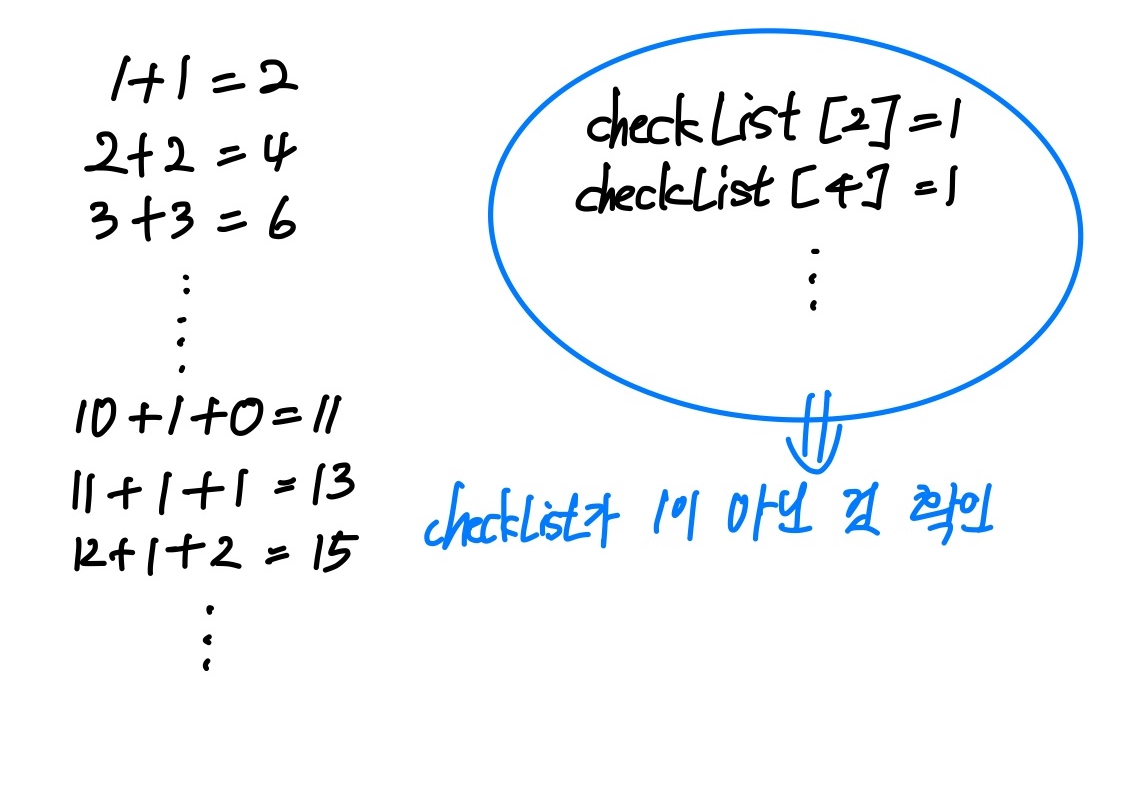 1+1=2
2+2=4
3+3=6
10+1+0=11
11+1+1=13
12+1+2=15
checkList[2]=1
checkList[4]=1
checkList가 1이 아닌 걸 확인